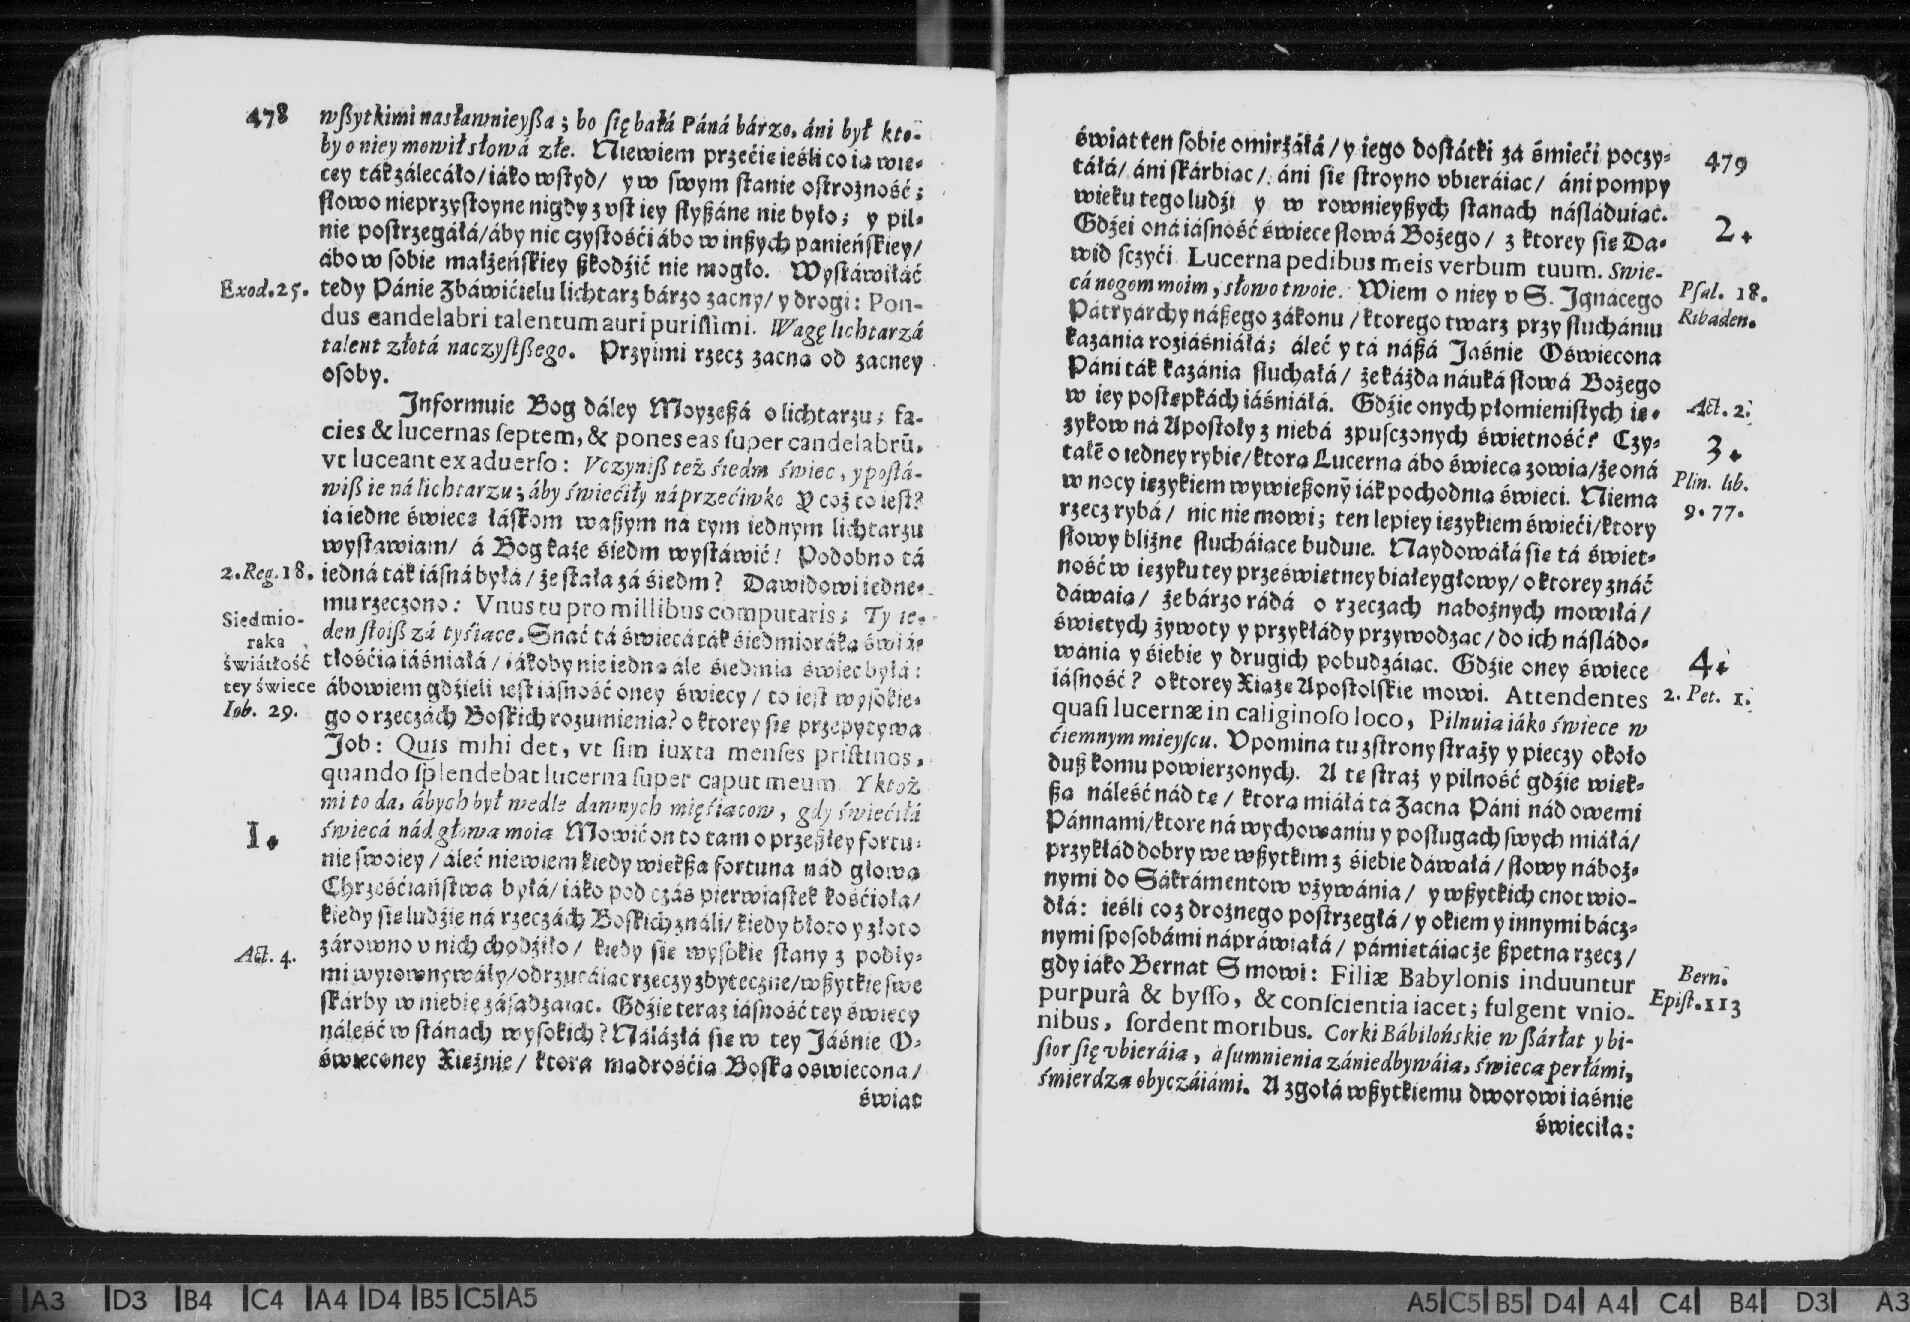 478
wßytkimi nasławnieyßa; bo ſię bałá Páná bárzo, áni był kto-
by o niey mowił słowá złe. Niewiem przećie ieśli co ią wię-
cey ták zálecáło/ iáko wſtyd/ y w ſwym ſtanie oſtrożność;
ſłowo nieprzyſtoyne nigdy z vſt iey ſłyßáne nie było; y pil-
nie poſtrzegáłá/ áby nic czyſtośći ábo w inßych panieńſkiey/
ábo w ſobie małżeńſkiey ßkodźić nie mogło. Wyſtáwiłáć
Exod. 25.
tedy Pánie Zbáwićielu lichtarz bárzo zacny/ y drogi: Pon-
dus candelabri talentum auri puriſſimi. Wagę lichtarzá
talent złotá naczyſtßego. Przyimi rzecz zacną od zacney
oſoby.
Informuie Bog dáley Moyzeßá o lichtarzu; fa-
cies & lucernas ſeptem, & pones eas ſuper candelabrū,
vt luceant ex aduerſo: Vczyniß też śiedm świec, y poſtá-
wiß ie ná lichtarzu; áby świećiły náprzećiwko Y coż to ieſt?
ia iednę świecę łáſkom waßym na tym iednym lichtarzu
wyſtawiam/ á Bog każe śiedm wyſtáwić! Podobno tá
2. Reg. 18.
iedná ták iáſná byłá/ że ſtała zá śiedm? Dawidowi iedne-
mu rzeczono: Vnus tu pro millibus computaris; Ty ie-
Siedmio-
raka
świátłość
tey świece
den ſtoiß zá tyśiące. Snać tá świecá ták śiedmioráką świá-
tłośćią iáśniałá/ iákoby nie iedną ále śiedmią świec byłá:
ábowiem gdźieli ieſt iáſność oney świecy/ to ieſt wyſokie-
Iob. 29.
go o rzeczách Boſkich rozumienia? o ktorey ſię przepytywa
Job: Quis mihi det, vt ſim iuxta menſes priſtinos,
quando ſplendebat lucerna ſuper caput meum. Y ktoż
mi to da, ábych był wedle dawnych mięśiącow, gdy świećiłá
1.
świecá nád głową moią Mowić on to tam o przeßłey fortu-
nie ſwoiey/ áleć niewiem kiedy więkßa fortuna nád głową
Chrześćiáńſtwa byłá/ iáko pod czás pierwiaſtek kośćioła/
kiedy ſię ludźie ná rzeczách Boſkich ználi/ kiedy błoto y złoto
Act. 4.
zárowno v nich chodźiło/ kiedy ſię wyſokie ſtany z podły-
mi wyrownywáły/ odrzucáiąc rzeczy zbyteczne/ wßytkie ſwe
ſkárby w niebie záſadzaiąc. Gdźie teraz iáſność tey świecy
náleść w ſtánach wyſokich? Nálázłá ſię w tey Jáśnie O-
święconey Xiężnie/ ktora mądrośćią Boſką oświecona/
świat
479
świat ten ſobie omirżáłá/ y iego doſtátki zá śmieći poczy-
táłá/ áni ſkárbiąc/ áni ſię ſtroyno vbieráiąc/ áni pompy
wieku tego ludźi y w rownieyßych ſtanach náśláduiąc.
2.
Gdźiei oná iáſność świece ſłowá Bożego/ z ktorey ſię Da-
wid ſczyći Lucerna pedibus meis verbum tuum. Swie-
Pſal. 18.
cá nogom moim, słowo twoie. Wiem o niey v S. Jgnácego
Ribaden.
Pátryárchy náßego zákonu/ ktorego twarz przy ſłuchániu
kazania roziáśniáłá; áleć y tá náßá Jaśnie Oświecona
Páni ták kazánia ſłuchałá/ że káżda náuká ſłowá Bożego
Act. 2.
w iey poſtępkách iáśniáłá. Gdźie onych płomieniſtych ię-
3.
zykow ná Apoſtoły z niebá zpuſczonych świetność? Czy-
tałē o iedney rybie/ ktorą Lucerna ábo świecą zowią/ że oná
Plin. lib.
9. 77.
w nocy ięzykiem wywießonȳ iák pochodnia świeci. Niema
rzecz rybá/ nic nie mowi; ten lepiey ięzykiem świeći/ ktory
ſłowy bliźne ſłucháiące buduie. Naydowáłá ſię tá świet-
ność w ięzyku tey prześwietney białeygłowy/ o ktorey znáć
dáwaią/ że bárzo rádá o rzeczach nabożnych mowiłá/
świętych żywoty y przykłády przywodząc/ do ich náśládo-
4.
wánia y śiebie y drugich pobudzáiąc. Gdźie oney świece
2. Pet. 1.
iáſność? o ktorey Xiążę Apoſtolſkie mowi. Attendentes
quaſi lucernæ in caliginoſo loco, Pilnuią iáko świece w
ćiemnym mieyſcu. Vpomina tu z ſtrony ſtraży y pieczy około
duß komu powierzonych. A tę ſtraż y pilność gdźie więk-
ßą náleść nád tę/ ktorą miáłá tá Zacna Páni nád owemi
Pánnami/ ktore ná wychowaniu y poſługach ſwych miáłá/
przykłád dobry we wßytkim z śiebie dáwałá/ ſłowy náboż-
nymi do Sákrámentow vżywánia/ y wßytkich cnot wio-
dłá: ieśli co zdrożnego poſtrzegłá/ y okiem y innymi bácz-
nymi ſpoſobámi nápráwiałá/ pámiętáiąc że ßpetna rzecz/
gdy iáko Bernat S mowi: Filiæ Babylonis induuntur
Bern.
Epiſt. 113
purpurâ & byſſo, & conſcientia iacet; fulgent vnio-
nibus, ſordent moribus. Corki Bábilońskie w ßárłat y bi-
ſior ſię vbieráią, á ſumnienia zániedbywáią, świecą perłámi,
śmierdzą obyczáiámi. A zgołá wßytkiemu dworowi iaśnie
świeciła:
A3 D3 B4 C4 A4 D4 B5 C5 A5
A5 C5 B5 D4 A4 C4 B4 D3 A3